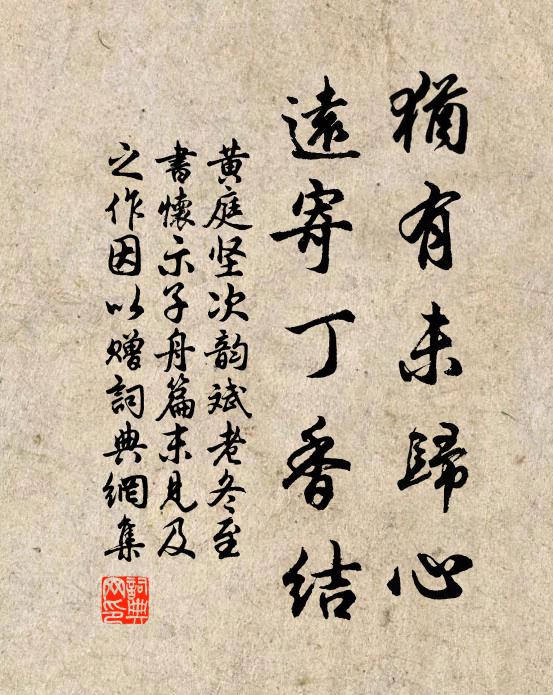 猶有未歸心
遠寄丁香結
黄庭坚次韵斌老冬至
書懷示子舟篇末見及
之作因以贈詞典網集
詞典網印